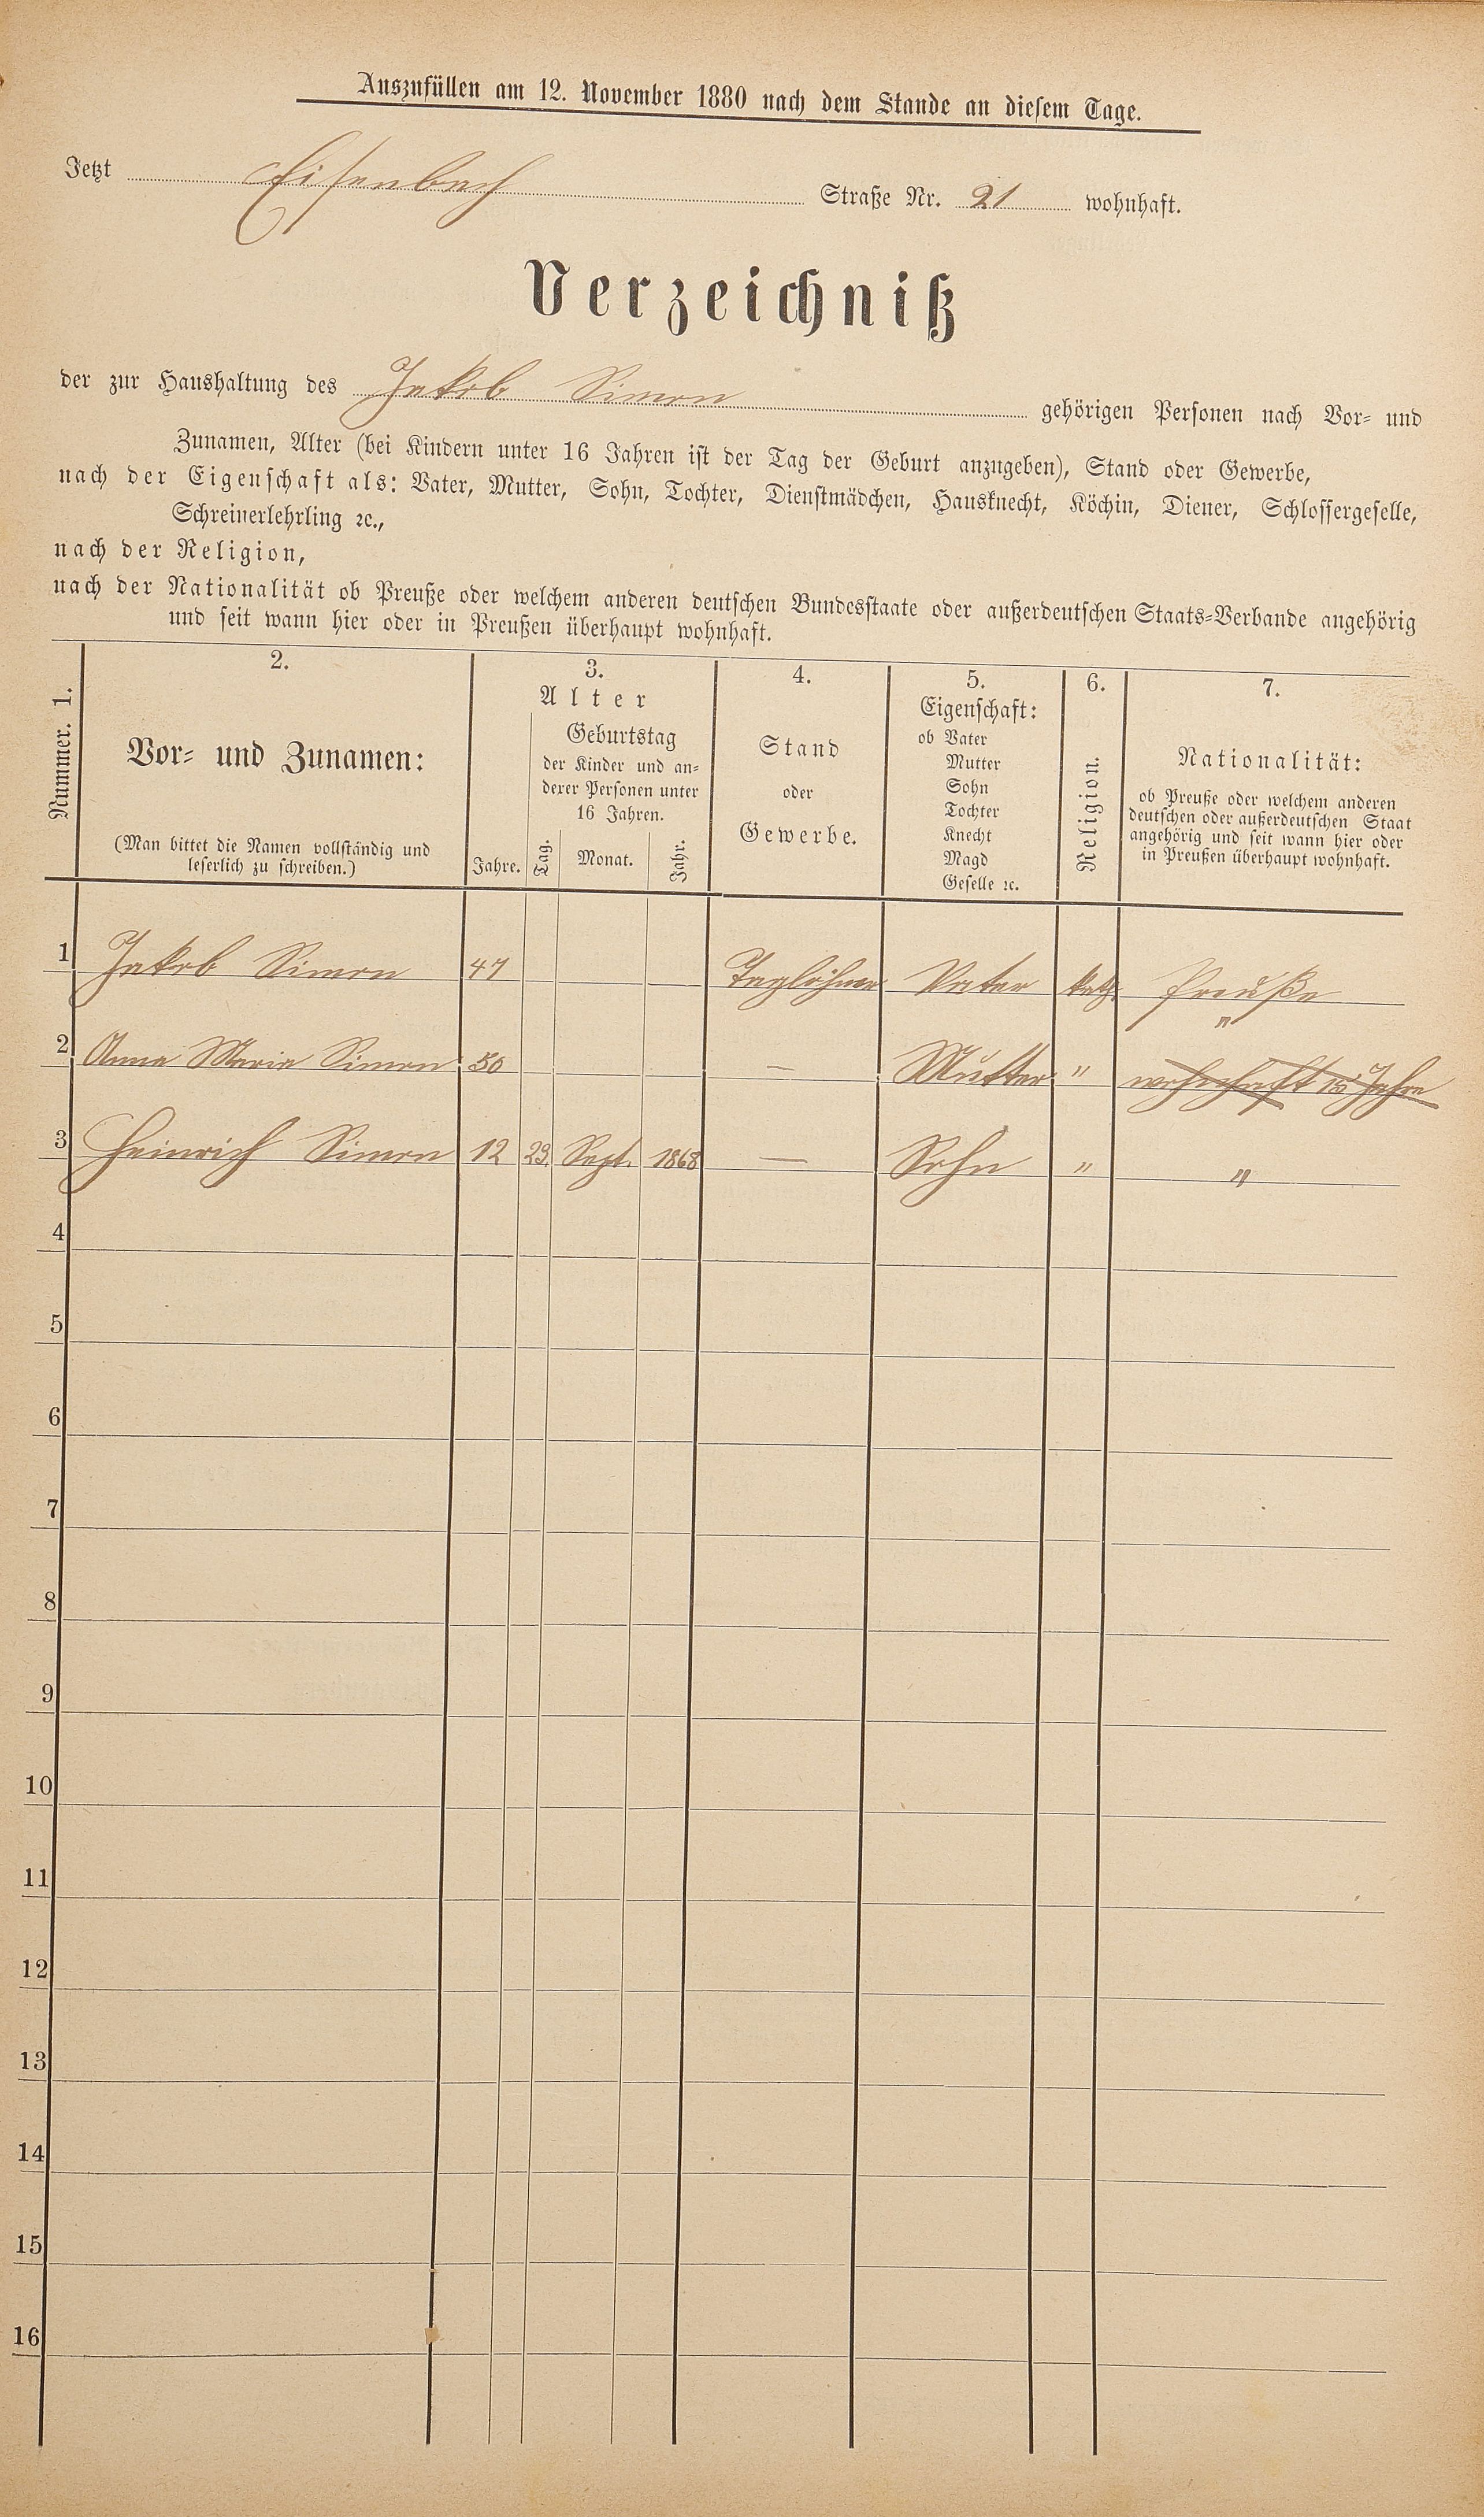 Auszufüllen am 12. November 1880 nach dem Stande an diesem Tage.
Jetzt Eisenbach Straße Nr. 21 wohnhaft.
Verzeichniß
der zur Haushaltung des Jakob Simon gehörigen Personen nach Vor- und
Zunamen, Alter (bei Kindern unter 16 Jahren ist der Tag der Geburt anzugeben), Stand oder Gewerbe,
nach der Eigenschaft als: Vater, Mutter, Sohn, Tochter, Dienstmädchen, Hausknecht, Köchin, Diener, Schlossergeselle,
Schreinerlehrling ꝛc.,
nach der Religion,
nach der Nationalität ob Preuße oder welchem anderen deutschen Bundesstaate oder außerdeutschen Staats-Verbande angehörig
und seit wann hier oder in Preußen überhaupt wohnhaft.
Nummer. 1.
2.
Vor- und Zunamen:
(Man bittet die Namen vollständig und
leserlich zu schreiben.)
3.
Alter
Jahre.
Geburtstag
der Kinder und an-
derer Personen unter
16 Jahren.
Tag. Monat. Jahr.
4.
Stand
oder
Gewerbe.
5.
Eigenschaft:
ob Vater
Mutter
Sohn
Tochter
Knecht
Magd
Geselle ꝛc.
6.
Religion.
7.
Nationalität:
ob Preuße oder welchem anderen
deutschen oder außerdeutschen Staat
angehörig und seit wann hier oder
in Preußen überhaupt wohnhaft.
1 Jakob Simon 47 Taglöhner Vater kath. Preuße
2 Anna Maria Simon 50 — Mutter " "
wohnhaft 15 Jahre
3 Heinrich Simon 12 29. Sept. 1868 — Sohn " "
4
5
6
7
8
9
10
11
12
13
14
15
16